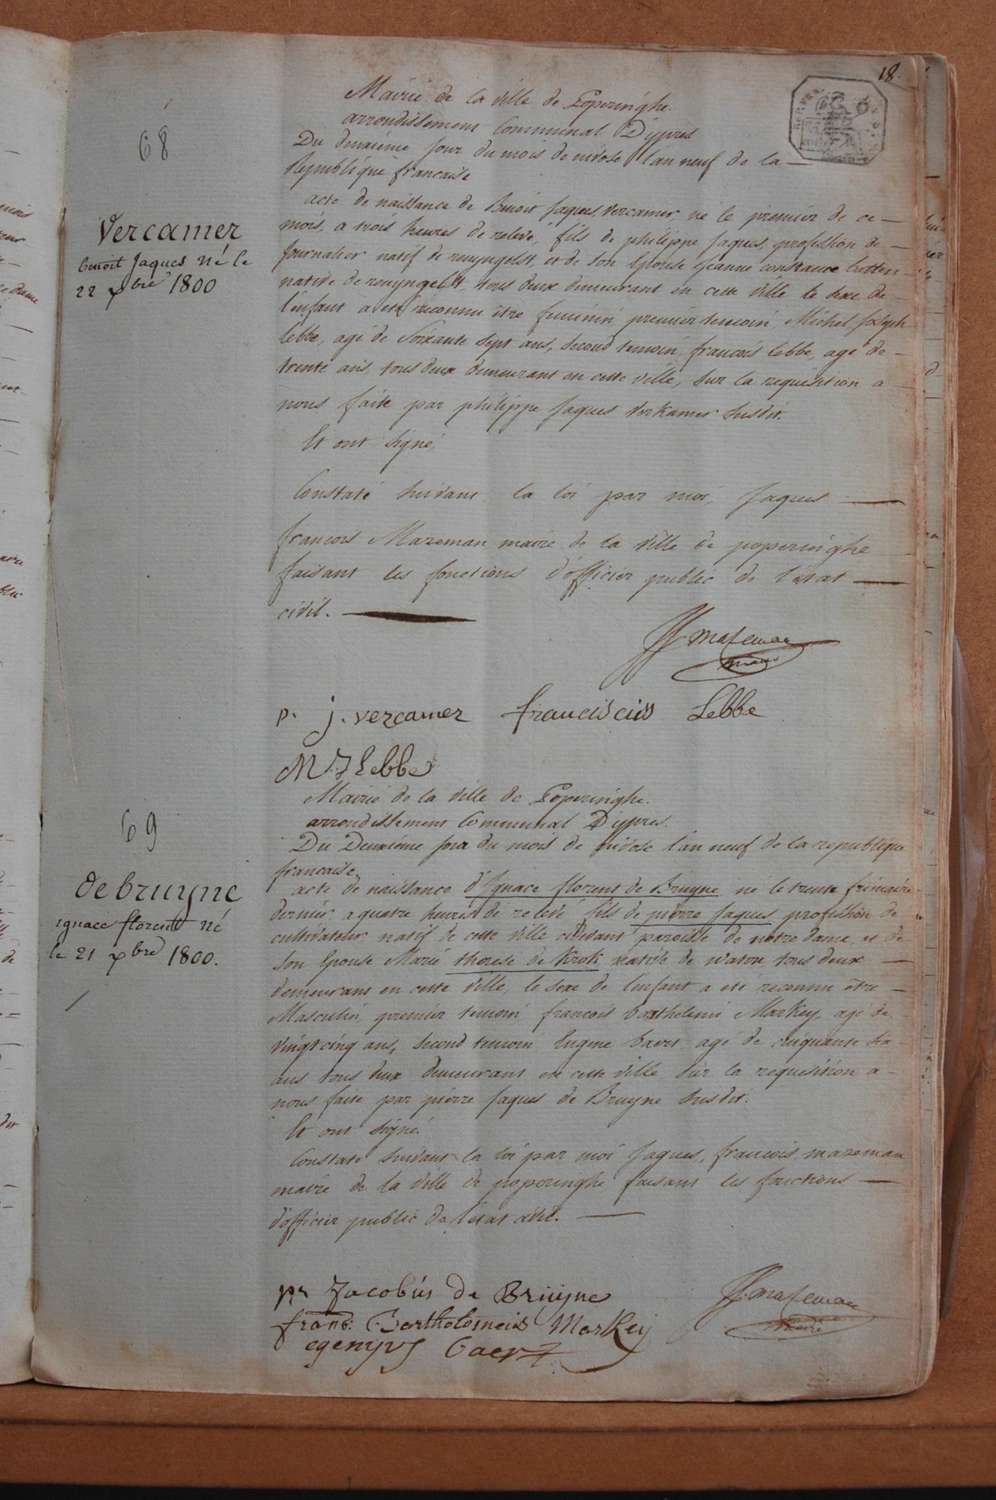 18.
68
Vercamer
benoit Jaques né le
22 xbre 1800
Mairie de la ville de Poperinghe
arrondissement Communal D'ypres
Du deuxieme jour du mois de nivose l'an neuf de la
Republique francaise
acte de naissance de Benoit Jaques Vercamer né le premier de ce
mois, a trois heures de relevé, fils de philippe Jaques, profession de
journalier natif de renyngelst, et de son Epouse Jeanne constance
native de renyngelst, tous deux demeurant en cette ville le sexe de
l'enfant a eté reconnu être feminin premier temoin, Michel Joseph
Lebbe, agé de Soixante sept ans, second temoin francois Lebbe, agé de
trente ans tous deux demeurant en cette ville, sur la requisition a
nous faite par philippe Jaques Verkamer susdit.
Et ont signé,
Constaté suivant la loi par moi, Jaques
francois Mazeman maire de la ville de poperinghe
faisant les fonctions d'officier public de l'etat
civil.
JF Mazeman
maire
p. j. vercamer franciscus Lebbe
M. J Lebbe
69
debruyne
ignace florent né
le 21 xbre 1800.
Mairie de la ville de Poperinghe.
arrondissement Communal D'ypres.
Du Deuxieme jour du mois de nivose l'an neuf de la republique
francaise
acte de naissance d'Ignace florent de Bruyne né le trente frimaire
dernier a quatre heures de relevé fils de pierre Jaques profession de
cultivateur natif de cette ville cidevant paroisse de notre dame, et de
son Epouse Marie therese de Krok native de watou tous deux
demeurans en cette ville, le sexe de l'enfant a eté reconnu être
Masculin, premier temoin francois Barthelemi Markey agé de
vingt cinq ans, second temoin Eugene baert agé de cinquante six
ans tous deux demeurans en cette ville sur la requisition a
nous faite par pierre Jaques de Bruyne susdit.
Et ont signé.
Constaté suivant la loi par moi Jaques, francois mazeman
maire de la ville de poperinghe faisant les fonctions
d'officier public de l'etat civil.
pr Jacobus de Bruyne
frans. Bartholomeus Markey
egenyus baert
JF. Mazeman
maire